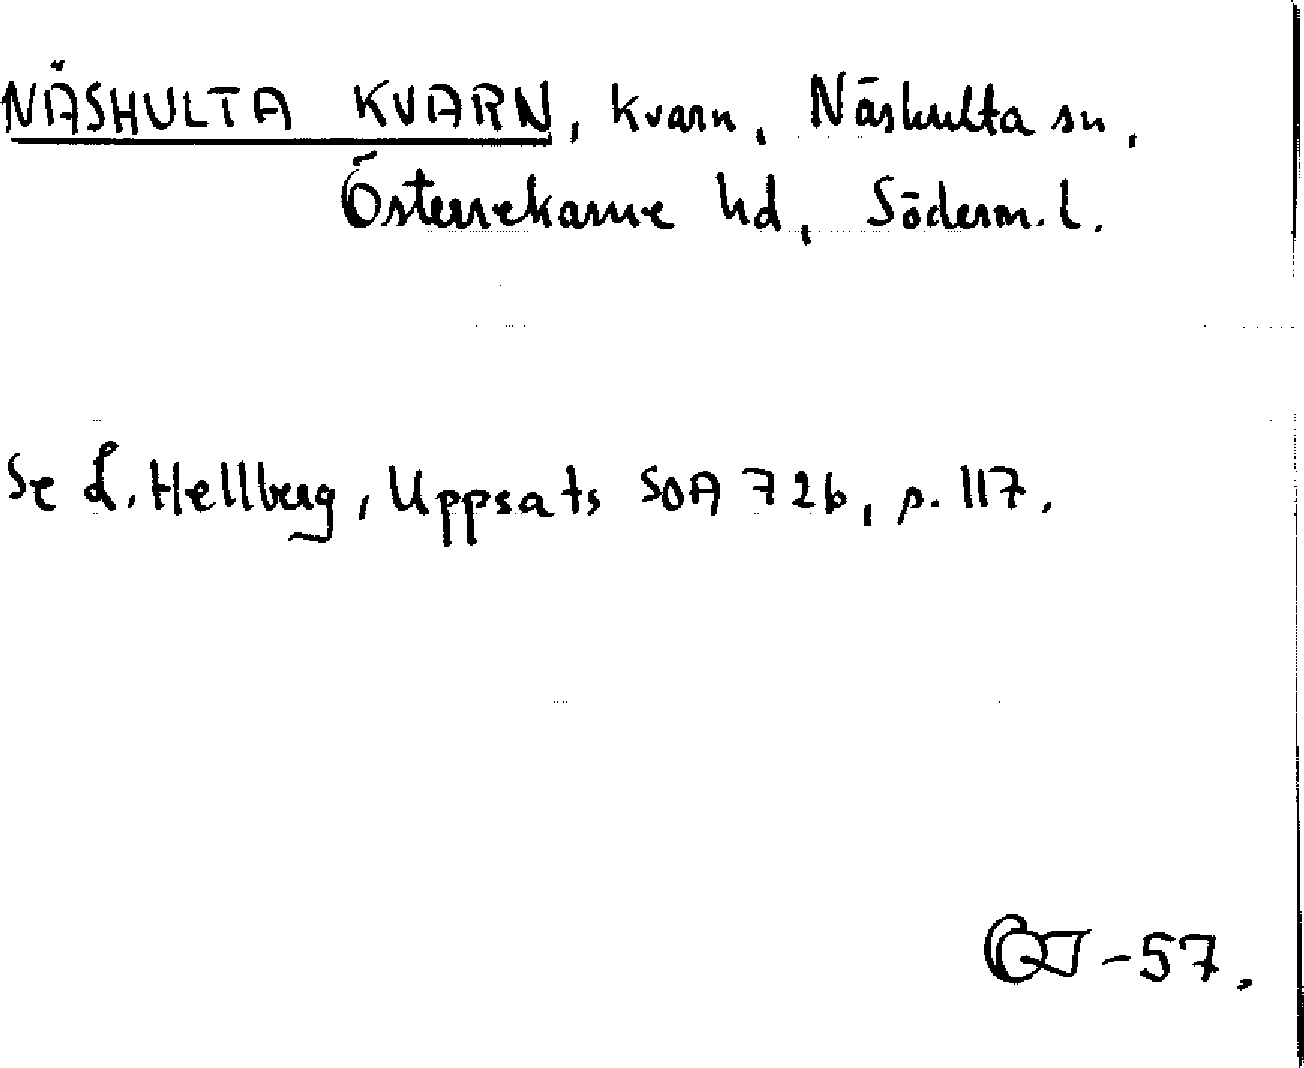 NÄSHULTA KVARN, kvarn, Näshulta sn,
Österrekarne hd, Söderm. l.
Se L. Hellberg, Uppsats SOA 72b, p. 117.
-57.